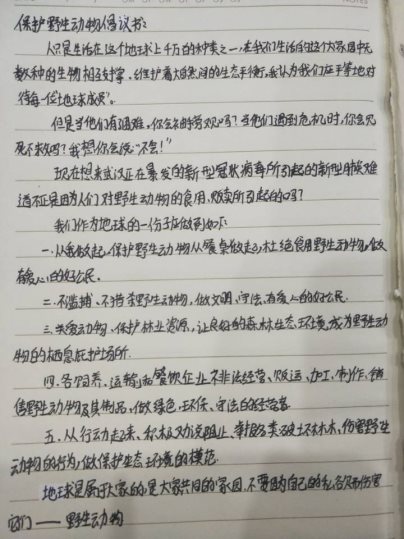 保护野生动物倡议书:
人只是生活在这个地球上千万的种类之一,在我们生活的这个大家园中无
数种的生物相互支撑,维护着大自然间的生态平衡,我认为我们应平等地对
待每一位"地球成果"。
但是当他们有困难,你会袖手旁观吗?当他们遇到危机时,你会见
死不救吗?我想你会说"不会!"
现在想来武汉正在暴发的新型冠状病毒所引起的新型肺炎难
道不正是因为人们对野生动物的食用、贩卖所引起的吗?
我们作为地球的一份子应做到如下:
一.从我做起,保护野生动物从餐桌做起,杜绝食用野生动物,做
有爱心的好公民.
二.不滥捕、不猎杀野生动物,做文明、守法、有爱心的好公民.
三.关爱动物、保护林业资源,让良好的森林生态环境成为野生动
物的栖息庇护场所.
四.各饲养、运输和餐饮企业不非法经营、贩运、加工、制作、销
售野生动物及其制品,做绿色、环保、守法的经营者.
五.从行动起来,积极劝说阻止、举报各类破坏林木,伤害野生
动物的行为,做保护生态环境的模范.
地球是属于大家的,是大家共同的家园,不要因为自己的私欲而伤害
它们——野生动物